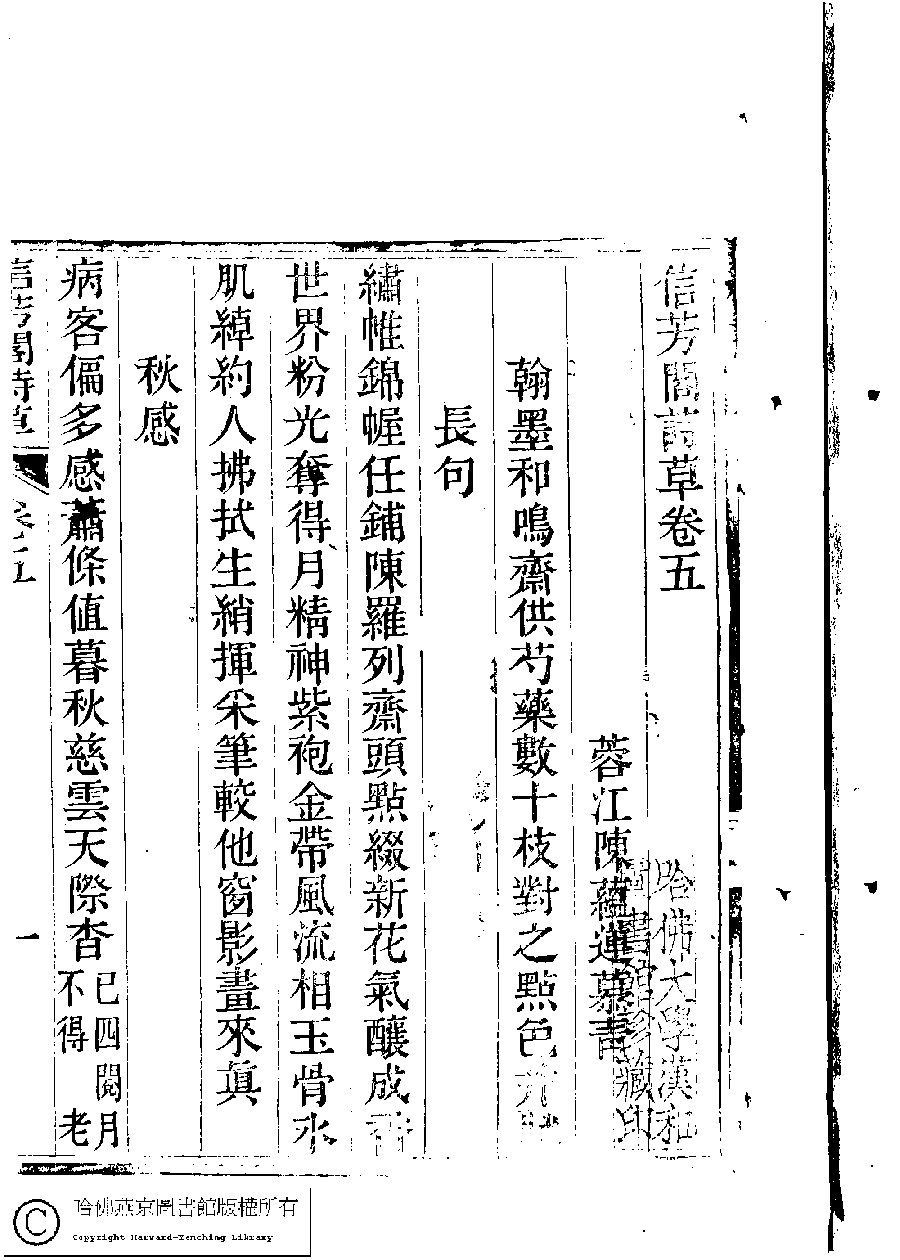 信芳閣詩草卷五
蓉江陳蘊蓮慕青
哈佛大學漢和
圖書館珍藏印
翰墨和鳴齋供芍藥數十枝對之點色并
長句
繡帷錦幄任鋪陳羅列齋頭點綴新花氣釀成香
世界粉光奪得月精神紫袍金帶風流相玉骨氷
肌綽約人拂拭生綃揮采筆較他窗影畫來眞
秋感
病客偏多感蕭條值暮秋慈雲天際杳
已四閱月
不得
老
信芳閣詩草
卷五
一
哈佛燕京圖書館版權所有
Copyright Harvard-Yenching Library